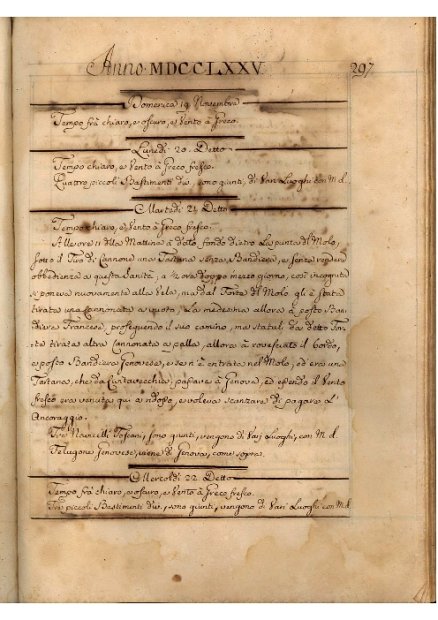 Anno MDCCLXXV
297
Domenica 19 Novembre
Tempo frà chiaro, e oscuro, e Vento à Greco.
Lunedì 20. Detto
Tempo chiaro, e Vento à Greco fresco.
Quattro piccoli Bastimenti d.i, sono giunti, di Vari Luoghi con M. d.
Martedì 21 Detto
Tempo chiaro, e Vento à Greco fresco.
All'ore 11 della Mattina à dato fondo dietro La punta del Molo,
sotto il Tiro di Cannone una Tartana senza Bandiera, e senza rendere
obbedienza a questa Sanità, a ore doppo mezzo giorno, così incognita
si poneva nuovamente alla Vela, ma dal Forte del Molo gli è stata
tirata una Cannonata a vuoto, La medesima allora à posto Ban-
diera Francese, proseguendo il suo camino, ma statali da detto For-
te tirata altra Cannonata a palla, allora à rovesciato il bordo,
e posto Bandiera Genovese, e se n'è entrata nel Molo, ed era una
Tartana, che da Civitavecchia, passava à Genova, ed essendo il Vento
fresco era venuta qui a ridosso, e voleva scanzare di pagare L'
Ancoraggio.
Tre Navicelli Toscani, sono giunti, vengono di Varj Luoghi, con M. d.
Feluca Genovese, viene di Genova, come sopra.
Mercoldì 22 Detto
Tempo frà chiaro, e oscuro, e Vento à Greco fresco.
Trè piccoli Bastimenti d.i, sono giunti, vengono di Vari Luoghi con M. d.